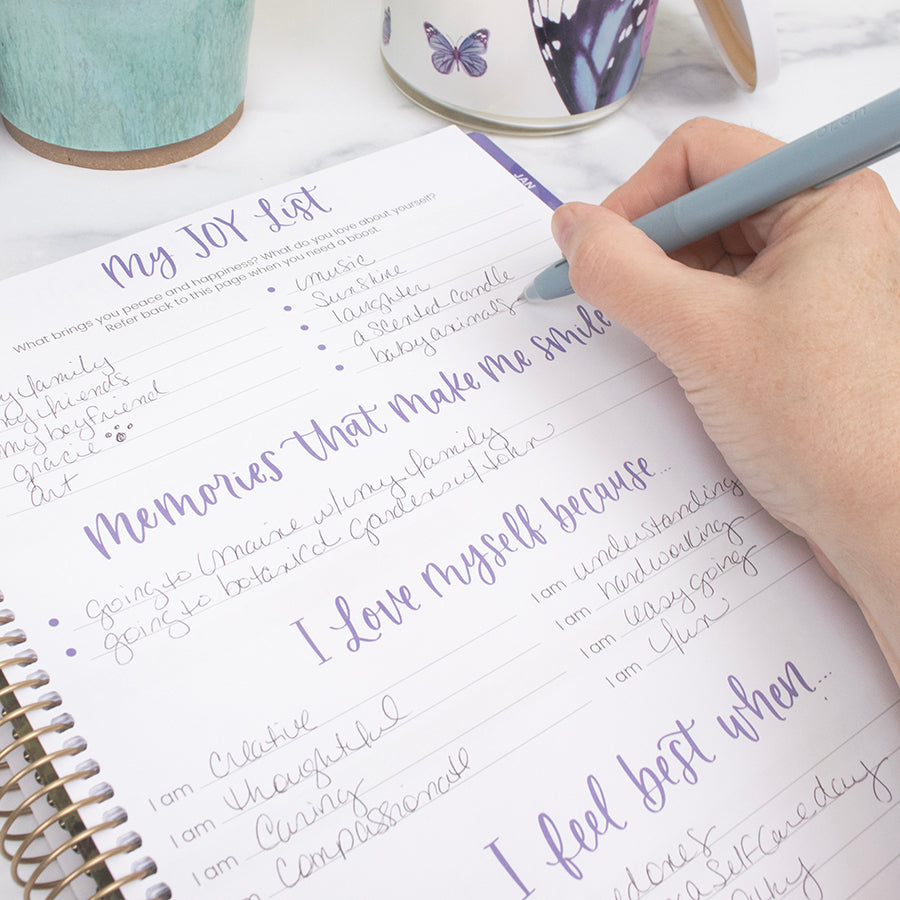 JAN
My JOY List
What brings you peace and happiness? What do you love about yourself?
Refer back to this page when you need a boost.
my family
my friends
my boyfriend
gracie
art
music
Sunshine
laughter
a scented candle
baby animals
Memories that make me smile
going to Maine w/my family
going to botanical gardens w/ John
I Love Myself because...
I am creative
I am thoughtful
I am caring
compassionate
I am understanding
I am hardworking
I am easy going
I am fun
I feel best when...
a Self Care day